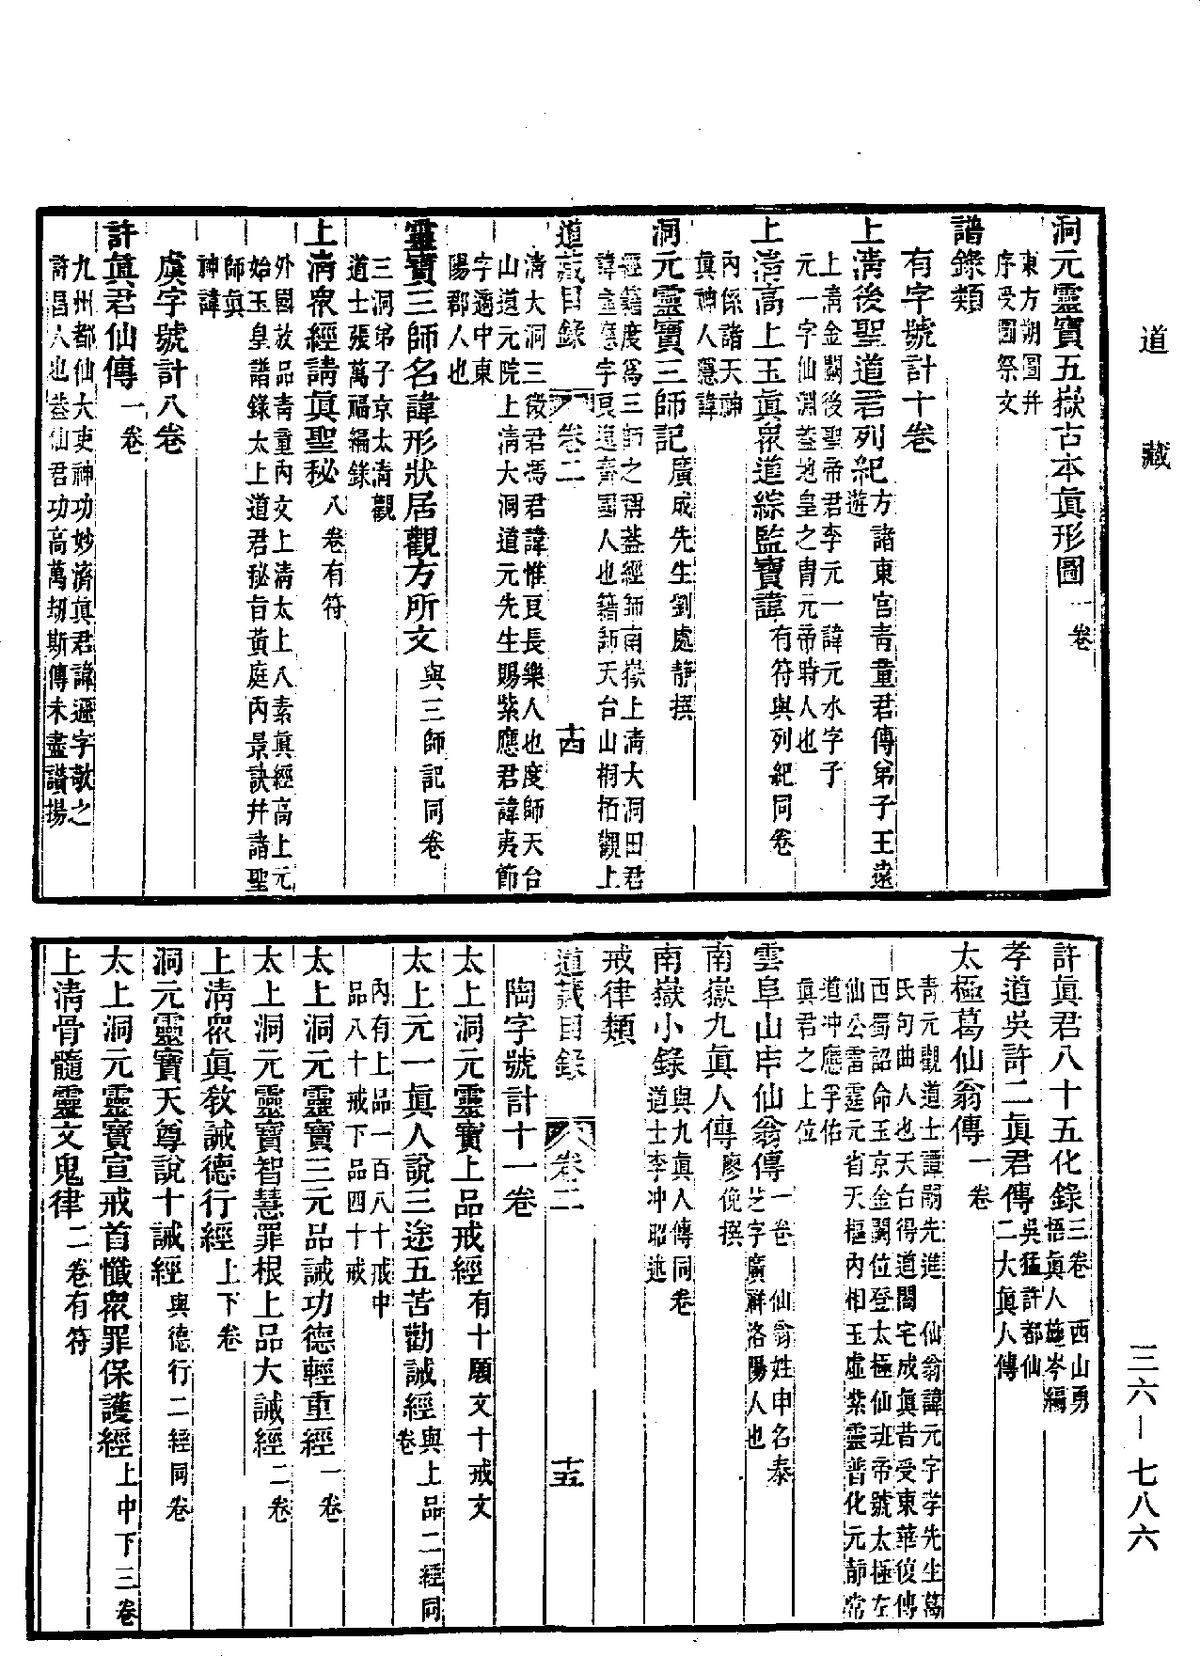 道藏
洞元靈寶五嶽古本眞形圖一卷
東方朔圖幷
序受圖祭文
譜錄類
有字號計十卷
上淸後聖道君列紀方諸東宮靑童君傳弟子王遠
遊
上淸金闕後聖帝君李元一諱元水字子
元一字仙淵蓋地皇之冑元帝時人也
上淸高上玉眞衆道綜監寶諱有符與列紀同卷
內係諸天神
眞神人隱諱
洞元靈寶三師記廣成先生劉處靜撰
經籍度爲三師之稱蓋經師南嶽上淸大洞田君
諱虛應字良逸齊國人也籍師天台山桐柏觀上
道藏目錄 卷二 十四
淸大洞三徵君馮君諱惟良長樂人也度師天台
山道元院上淸大洞道元先生賜紫應君諱夷節
字適中東
陽郡人也
靈寶三師名諱形狀居觀方所文與三師記同卷
三洞弟子京太淸觀
道士張萬福編錄
上淸衆經諸眞聖秘八卷有符
外國放品靑童內文上淸太上八素眞經高上元
始玉皇譜錄太上道君秘旨黃庭內景訣幷諸聖
師眞
神諱
虞字號計八卷
許眞君仙傳一卷
九州都仙大吏神功妙濟眞君諱遜字敬之
許昌人也蓋仙君功高萬刼斯傳未盡讚揚
許眞君八十五化錄三卷 西山勇
悟眞人施岑編
孝道吳許二眞君傳吳猛許都仙
二大眞人傳
太極葛仙翁傳一卷
靑元觀道士譚嗣先進 仙翁諱元字孝先生葛
氏句曲人也天台得道閤宅成眞昔受東華復傳
西蜀詔命玉京金闕位登太極仙班帝號太極左
仙公雷霆元省天樞內相玉虛紫靈普化元靜常
道冲應孚佑
眞君之上位
雲阜山申仙翁傳一卷 仙翁姓申名泰
芝字廣祥洛陽人也
南嶽九眞人傳廖侁撰
南嶽小錄與九眞人傳同卷
道士李冲昭述
戒律類
道藏目錄 卷二 十五
陶字號計十一卷
太上洞元靈寶上品戒經有十願文十戒文
太上元一眞人說三途五苦勸誡經與上品二經同
卷
內有上品一百八十戒中
品八十戒下品四十戒
太上洞元靈寶三元品誡功德輕重經一卷
太上洞元靈寶智慧罪根上品大誡經二卷
上淸衆眞敎誡德行經上下卷
洞元靈寶天尊說十誡經與德行二經同卷
太上洞元靈寶宣戒首懺衆罪保護經上中下三卷
上淸骨髓靈文鬼律二卷有符
三六—七八六